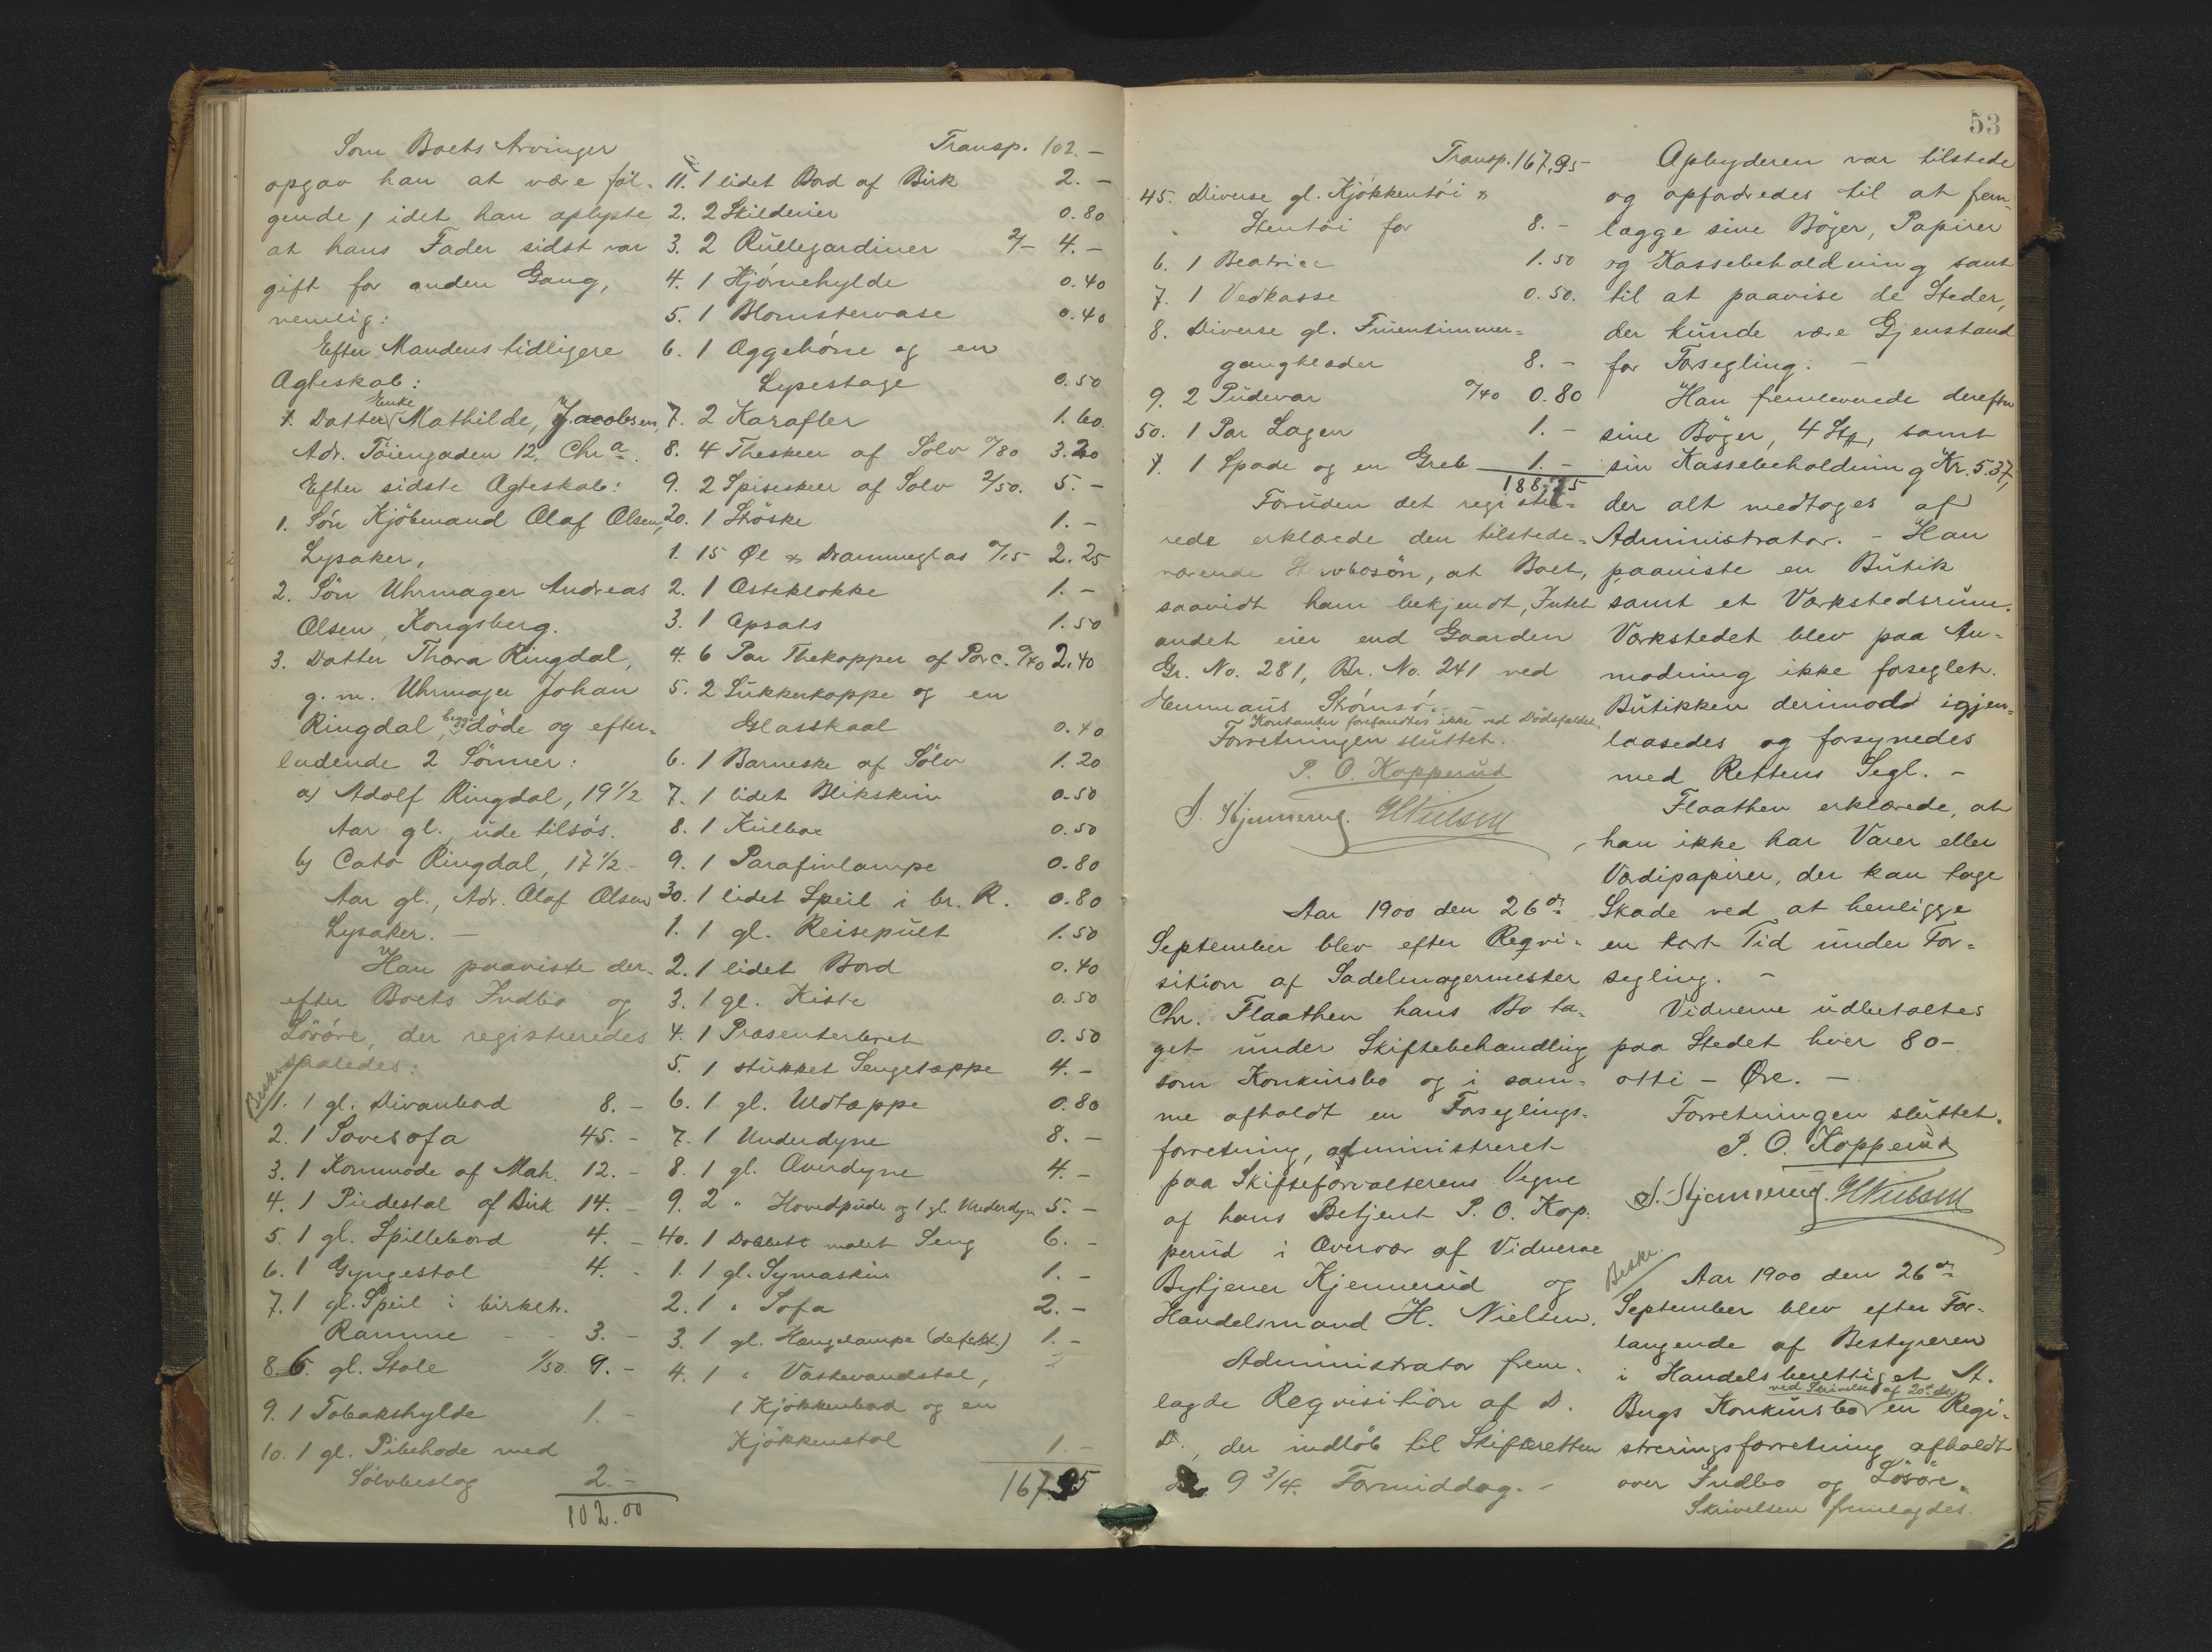 Som Boets Arvinger
opgav han at være føl-
gende, idet han oplyste
at hans Fader sidst var
gift for anden Gang,
nemlig:
Efter Mandens tidligere
Ægteskab:
1. Datter Enke Mathilde Jacobsen,
Adr. Töiengaden 12, Chr.a
Efter sidste Ægteskab:
1. Sön Kjöbmand Olaf Olsen,
Lysaker,
2. Sön Uhrmager Andreas
Olsen, Kongsberg.
3. Datter Thora Ringdal,
g. m. Uhrmager Johan
Ringdal, begge döde og efter-
ladende 2 Sönner:
a) Adolf Ringdal, 19 1/2
Aar gl., ude tilsös.
b) Cato Ringdal, 17 1/2
Aar gl., Adr. Olaf Olsen
Lysaker. –
Han paaviste der-
efter Boets Indbo og
Lösöre, der registreredes
saaledes:
Beskr.
1. 1 gl. Divanbord 8.-
2. 1 Sovesofa 45.-
3. 1 Kommode af Mah. 12.-
4. 1 Piedestal af Birk 14.-
5. 1 gl. Spillebord 4.-
6. 1 Gyngestol 4.-
7. 1 gl. Speil i birketr.
Ramme - - 3.-
8. 6 gl. Stole 1/50. 9.-
9. 1 Tobakshylde 1.-
10. 1 gl. Pibehode med
Sölvbeslag 2.-
102.00
Transp. 102.-
11. 1 lidet Bord af Birk 2.-
2. 2 Skilderier 0.80
3. 2 Rullegardiner 2/- 4.-
4. 1 Hjörnehylde 0.40
5. 1 Blomstervase 0.40
6. 1 Æggehöne og en
Lysestage 0.50
7. 2 Karafler 1.60
8. 4 Theskeer af Sölv 0/80 3.20
9. 2 Spiseskeer af Sölv 2/50. 5.-
20. 1 Ströske 1.-
1. 15 Øl & Dramméglas 0/15 2.25
2. 1 Osteklokke 1.-
3. 1 Opsats 1.50
4. 6 Par Thekopper af Porc. 0/40 2.40
5. 2 Sukkerkoppe og en
Glasskaal 0.40
6. 1 Barneske af Sölv 1.20
7. 1 lidet Blikskrin 0.50
8. 1 Kulbox 0.50
9. 1 Parafinlampe 0.80
30. 1 lidet Speil i br. R. 0.80
1. 1 gl. Reisepult 1.50
2. 1 lidet Bord 0.40
3. 1 gl. Kiste 0.50
4. 1 Præsenterbret 0.50
5. 1 stukket Sengetæppe 4.-
6. 1 gl. Uldtæppe 0.80
7. 1 Underdyne 8.-
8. 1 gl. Overdyne 4.-
9. 2 " Hovedpude og 1 gl. Underdyn 5.-
40. 1 Dobbelt malet Seng 6.-
1. 1 gl. Symaskin 1.-
2. 1 " Sofa 2.-
3. 1 gl. Hængelampe (defekt.) 1.-
4. 1 " Vaskevandstol,
1 Kjökkenbord og en
Kjökkenstol 1.-
167.95
53
Transp. 167,95
45. Diverse gl. Kjökkentöi &
Stentöi for 8.-
6. 1 Beatrice 1.50
7. 1 Vedkasse 0.50.
8. Diverse gl. Fruentimmer-
gangklæder 8.-
9. 2 Pudevar 0/40 0.80
50. 1 Par Lagen 1.-
1. 1 Spade og en Greb 1.-
188.75
Foruden det registre-
rede erklærede den tilstede-
værende Stervbosön, at Boet,
saavidt ham bekjendt, Intet
andet eier end Gaarden
Gr. No. 281, Br. No. 241 ved
Strömsö. –
Kontanter forfandtes ikke ved Dödsfaldet.
Forretningen sluttet.
P. O. Kopperud
S. Kjennerud. HNielsen
Aar 1900 den 26de
September blev efter Reqvi-
sition af Sadelmagermester
Chr. Flaathen hans Bo ta-
get under Skiftebehandling
som Konkursbo og i sam-
me afholdt en Forseglings-
forretning, administreret
paa Skifteforvalterens Vegne
af hans Betjent P. O. Kop-
perud i Overvær af Vidnerne
Bytjener Kjennerud og
Handelsmand H. Nielsen.
Administrator frem-
lagde Reqvisition af D.
D., der indlöb til Skifteretten
9 3/4 Formiddag. –
Opbyderen var tilstede
og opfordredes til at frem-
lægge sine Böger, Papirer
og Kassebeholdning samt
til at paavise de Steder,
der kunde være Gjenstand
for Forsegling. –
Han fremleverede derefter
sine Böger, 4 Stk., samt
sin Kassebeholdning Kr. 5.37,
der alt medtoges af
Administrator. – Han
paaviste en Butik
samt et Værkstedsrum.
Værkstedet blev paa An-
modning ikke forseglet.
Butikken derimod igjen-
laasedes og forsynedes
med Rettens Segl. –
Flaathen erklærede, at
han ikke har Varer eller
Værdipapirer, der kan tage
Skade ved at henligge
en kort Tid under For-
segling. –
Vidnerne udbetaltes
paa Stedet hver 80 –
otti – Øre. –
Forretningen sluttet.
P. O. Kopperud
S. Kjennerud. HNielsen
Beskr.
Aar 1900 den 26de
September blev efter For-
langende af Bestyreren
i Handelsberettiget St.
Bergs Konkursbo ved Skrivelse af 20de ds. en Regi-
streringsforretning afholdt
over Indbo og Lösöre.
Skrivelsen fremlagdes.